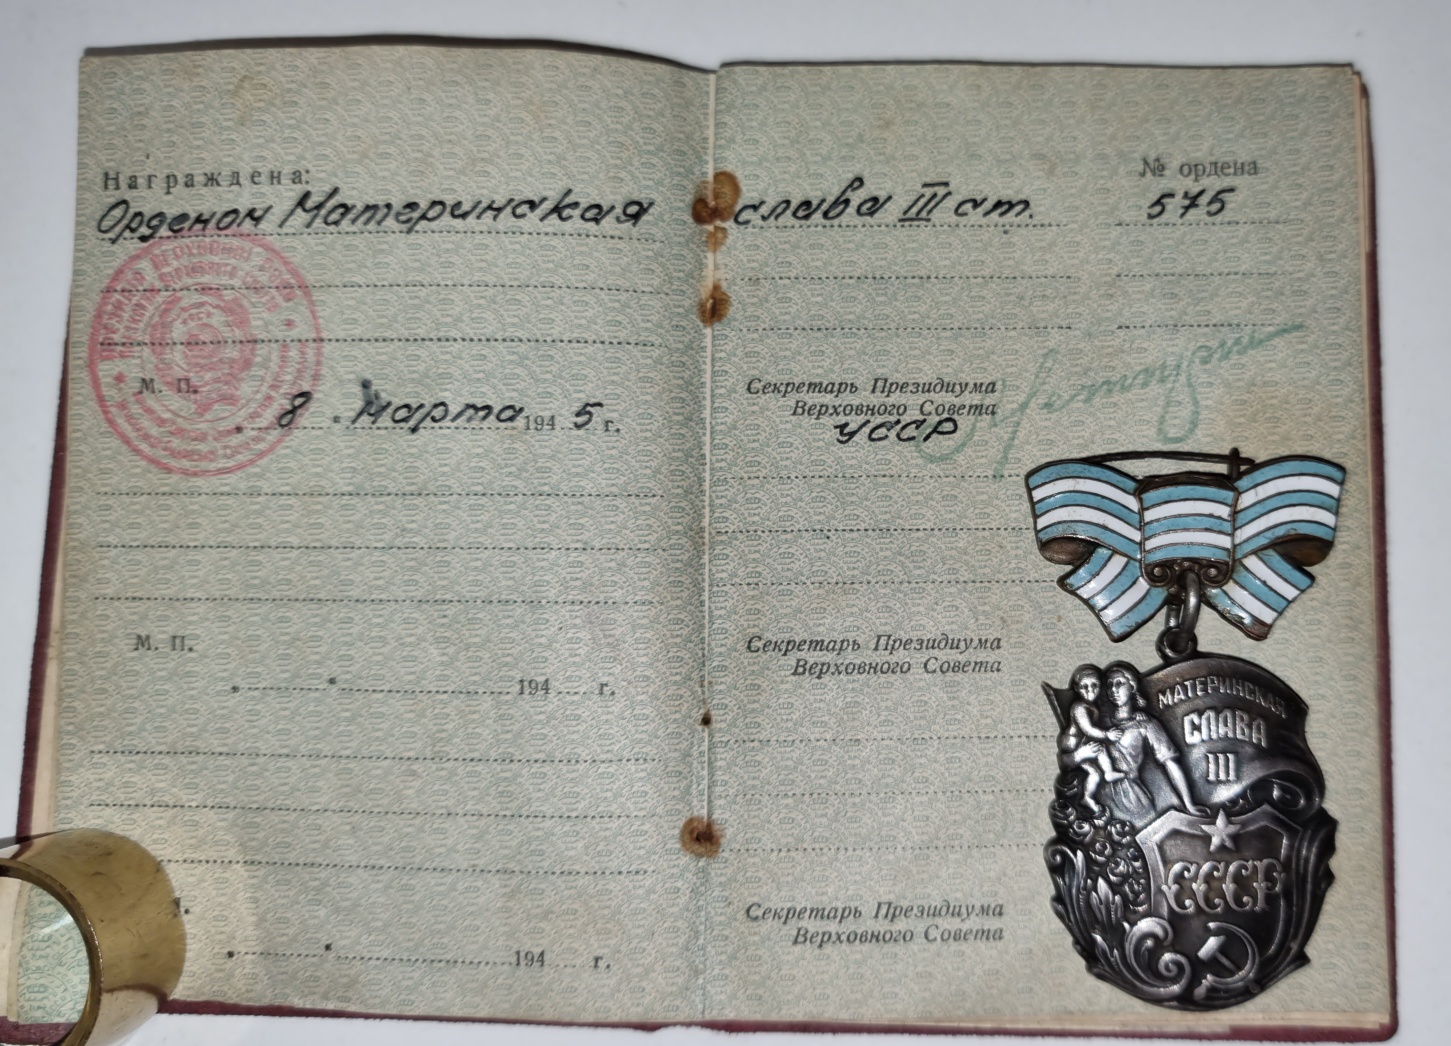 Награждена:
Орденом Материнская слава III ст.
№ ордена
575
ПРЕЗИДИУМ ВЕРХОВНОЙ РАДИ
М. П.
„ 8 " марта 1945 г.
Секретарь Президиума
Верховного Совета
УССР
М. П.
„ " 194 г.
Секретарь Президиума
Верховного Совета
„ " 194 г.
Секретарь Президиума
Верховного Совета
МАТЕРИНСКАЯ
СЛАВА
III
СССР